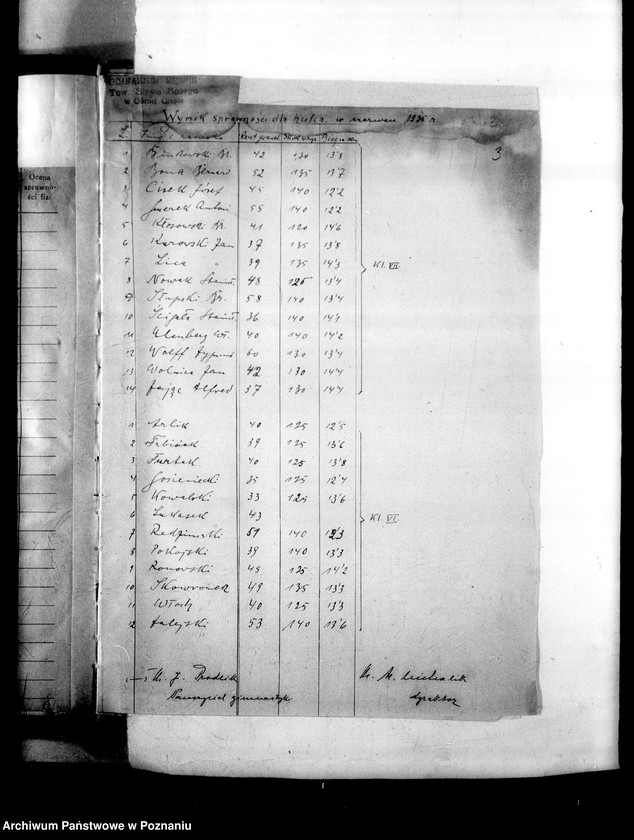 GIMNAZJUM MĘSKIE
Tow. Słowa Bożego
w Górnej Grupie
Wynik sprawności dla hufca w czerwcu 1935 r.
3
Rzut granat Skok wzw. Bieg
1 Br. 42 130 13'8
2 52 135 13'7
3 Cisek Józef 45 140 12'2
4 Antoni 55 140 12'2
5 Kłosowski Br. 41 120 14'6
6 Kurowski Jan 37 135 13'8
7 Lica " 39 135 14'3
Kl. VII
8 Nowak Stanisł. 48 125 13'4
9 Słupski Br. 58 140 13'4
10 Ścigała Stanisł. 36 140 14'4
11 Ulenberg Wł. 40 140 14'2
12 Wolff Zygmunt 60 130 13'4
13 Wolnica Jan 42 130 14'4
14 Zając Alfred 37 130 14'4
1 Arlik 40 125 12'5
2 Fabisiak 39 125 13'6
3 Furtak 40 125 13'8
4 Gosieniecki 35 125 12'4
5 Kowalski 33 125 13'6
6 Łukasek 43
Kl. VI
7 Redzimski 51 140 12'3
8 Pokojski 39 140 13'3
9 Ronowski 45 125 14'2
10 Skowronek 49 135 13'3
11 Włoch 40 125 13'3
12 Zalejski 53 140 13'6
Ks. J.
Ks. M. Michalik
Nauczyciel gimnastyki
dyrektor
Ocena
sprawno-
ści fiz.
Archiwum Państwowe w Poznaniu